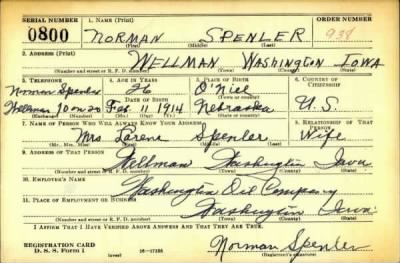 SERIAL NUMBER 1. NAME (Print) ORDER NUMBER
0800 NORMAN SPENLER 938
(First) (Middle) (Last)
2. ADDRESS (Print)
WELLMAN WASHINGTON IOWA
(Number and street or R. F. D. number) (Town) (County) (State)
3. TELEPHONE 4. AGE IN YEARS 5. PLACE OF BIRTH 6. COUNTRY OF CITIZENSHIP
Norman Spenler 26 O'Niel
DATE OF BIRTH (Town or county)
Wellman 10 on 20 Feb. 11 1914 Nebraska U.S.
(Exchange) (Number) (Mo.) (Day) (Yr.) (State or country)
7. NAME OF PERSON WHO WILL ALWAYS KNOW YOUR ADDRESS 8. RELATIONSHIP OF THAT PERSON
Mrs. Lorene Spenler Wife
(Mr., Mrs., Miss) (First) (Middle) (Last)
9. ADDRESS OF THAT PERSON
Wellman Washington Iowa
(Number and street or R. F. D. number) (Town) (County) (State)
10. EMPLOYER'S NAME
Washington Oil Company
11. PLACE OF EMPLOYMENT OR BUSINESS
Washington Iowa
(Number and street or R. F. D. number) (Town) (County) (State)
I AFFIRM THAT I HAVE VERIFIED ABOVE ANSWERS AND THAT THEY ARE TRUE.
REGISTRATION CARD
D. S. S. Form 1 (over) Norman Spenler
(Registrant's signature)